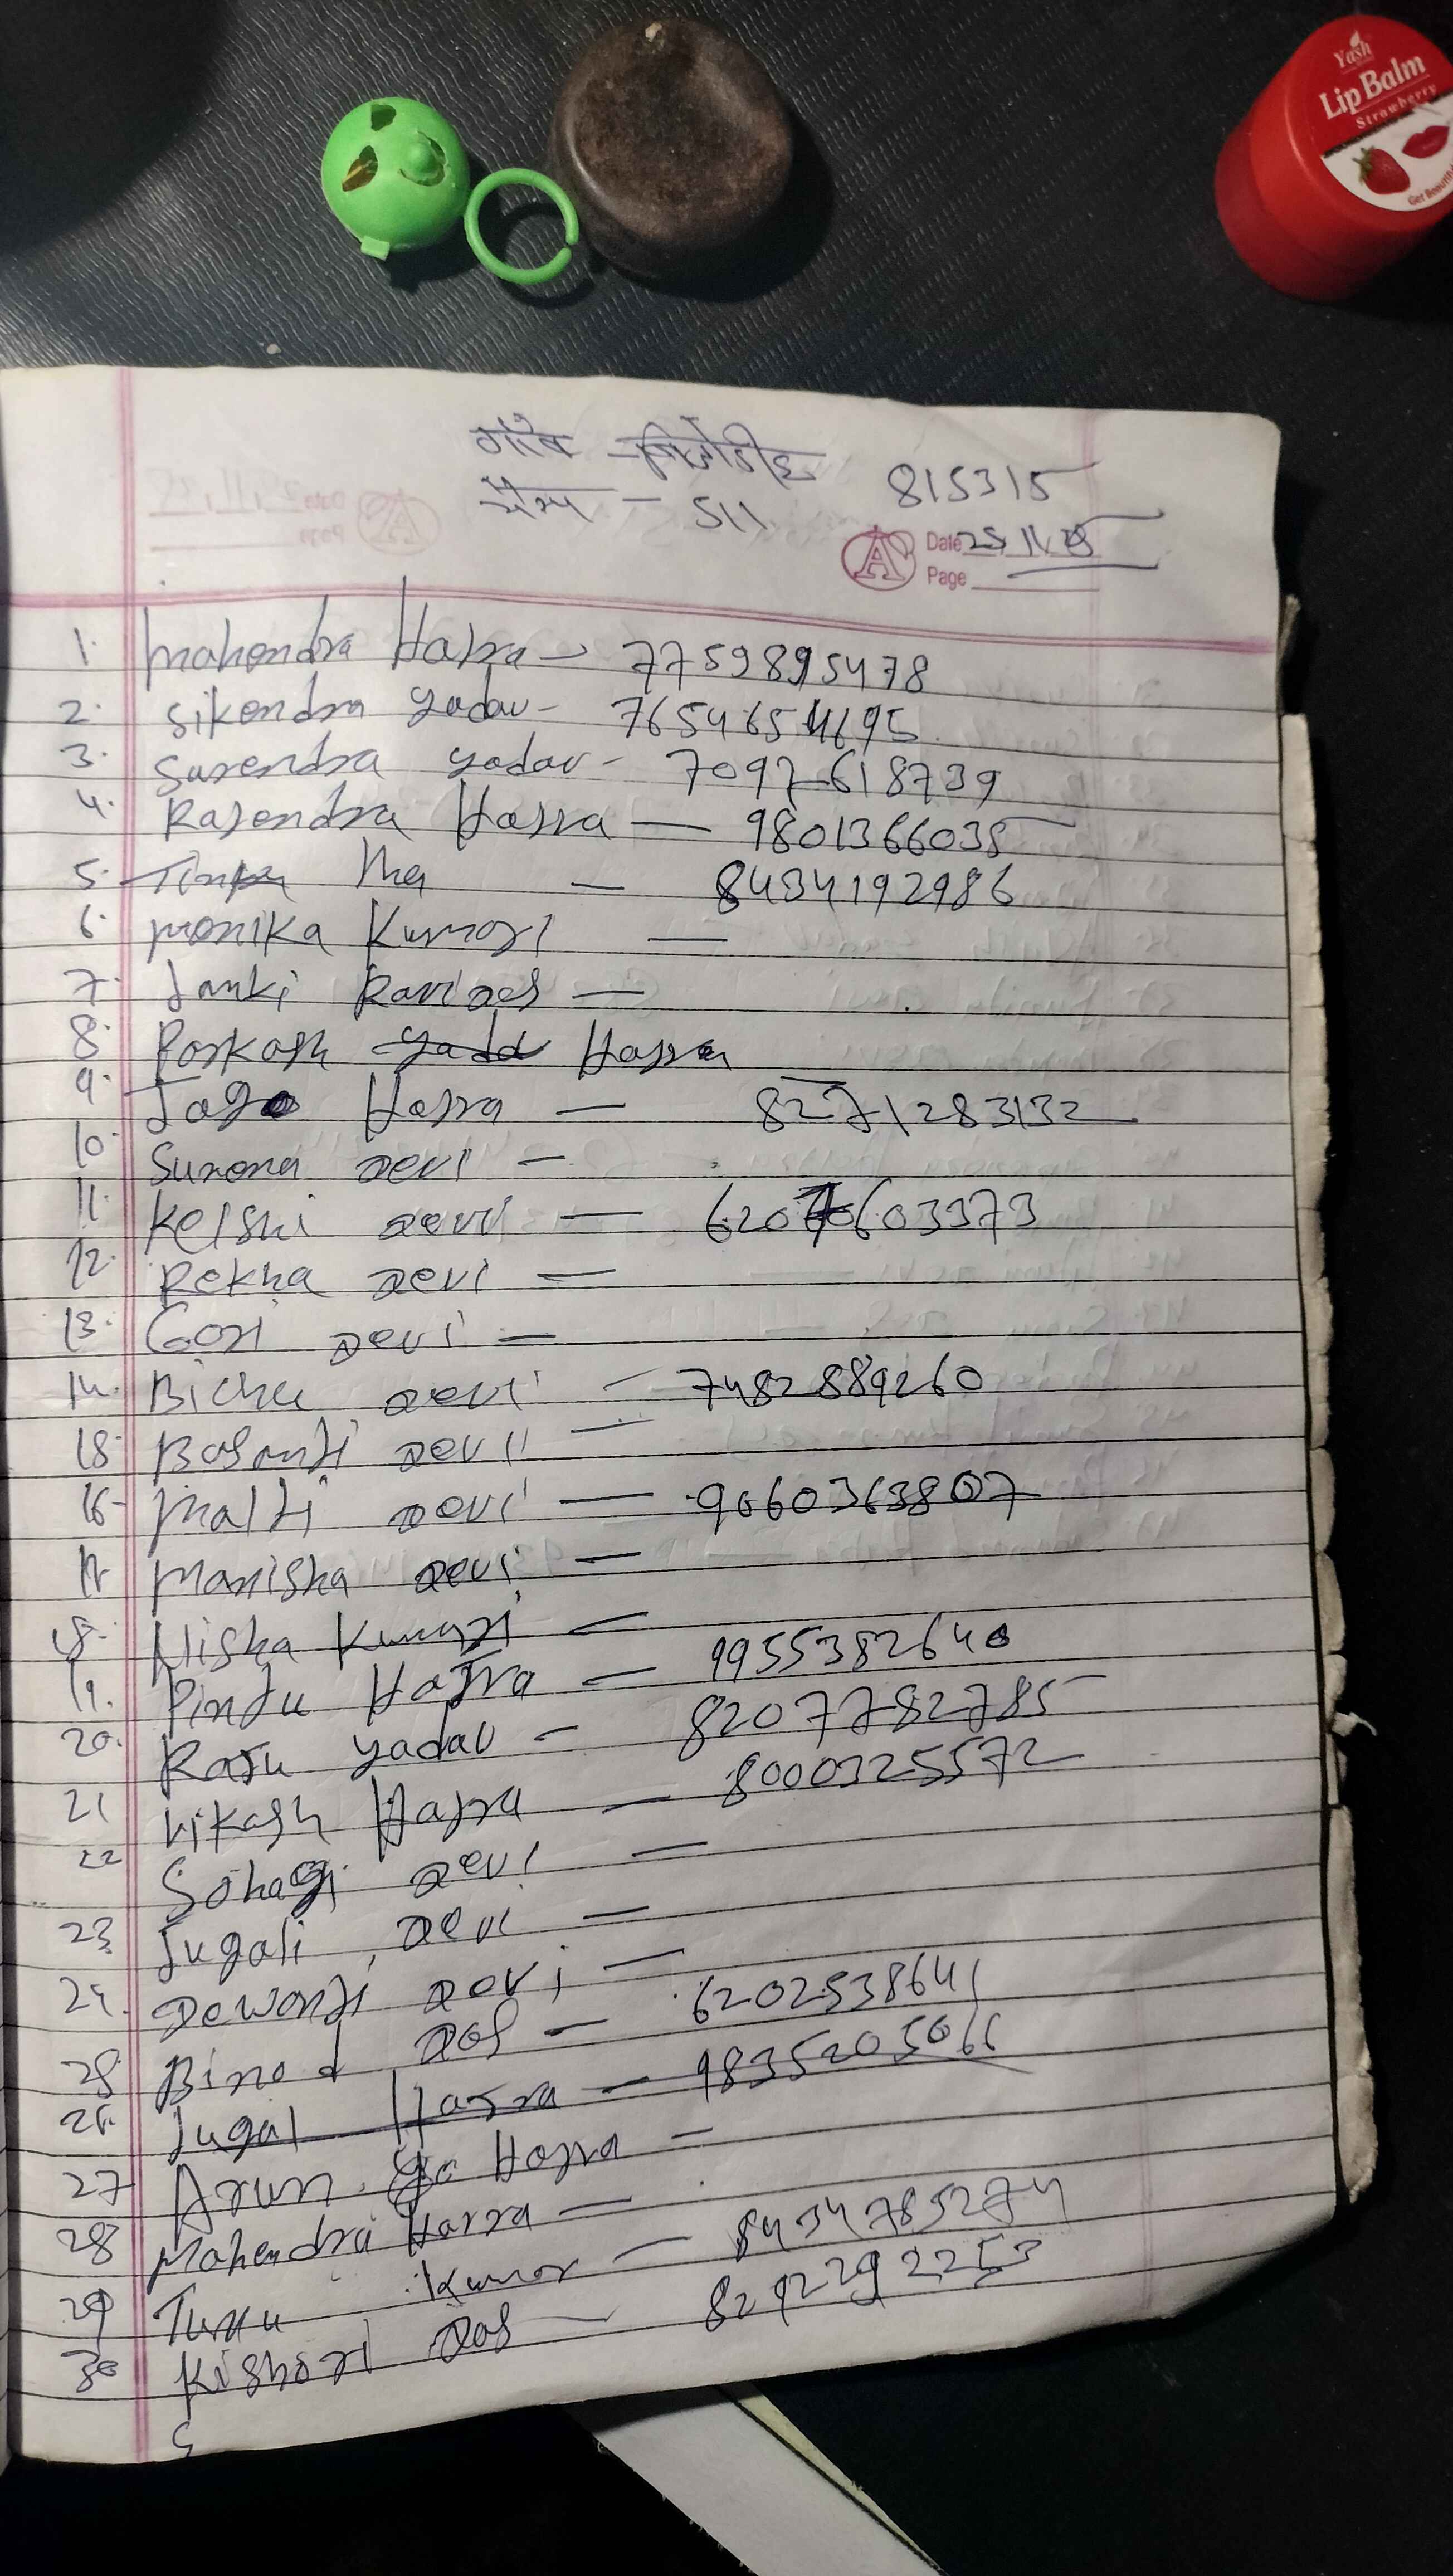 Yash
Lip Balm
Strawberry
गाँव -
815315
कैम्प - 511
Date 25.11.25
Page
1. Mahendra Hajra - 7759895478
2. Sikendra yadav - 7654654695
3. Surendra yadav - 7097618739
4. Rajendra Hajra - 9801366035
5. Jha - 8434192986
6. Monika Kumari -
7. Janki Ravidas -
8. Parkash Hajra
9. Jago Hajra - 8271283132
10. Devi -
11. Devi - 6207603373
12. Rekha Devi -
13. Gori Devi -
14. Devi - 7482889260
15. Basanti Devi -
16. Malti Devi - 9060363807
17. Manisha Devi -
18. Nisha Kumari -
19. Pintu Hajra - 9955382640
20. Raju yadav - 8207782785
21 Vikash Hajra - 8000325572
22 Sohagi Devi -
23 Jugali Devi -
24. Dewanti Devi -
25 Binod Das - 6202538641
26. Jugal Hajra - 9835205066
27 Arun Hajra -
28 Mahendra Hajra -
29 Kumar - 8434785274
30 Kishori Das - 8292292253
S